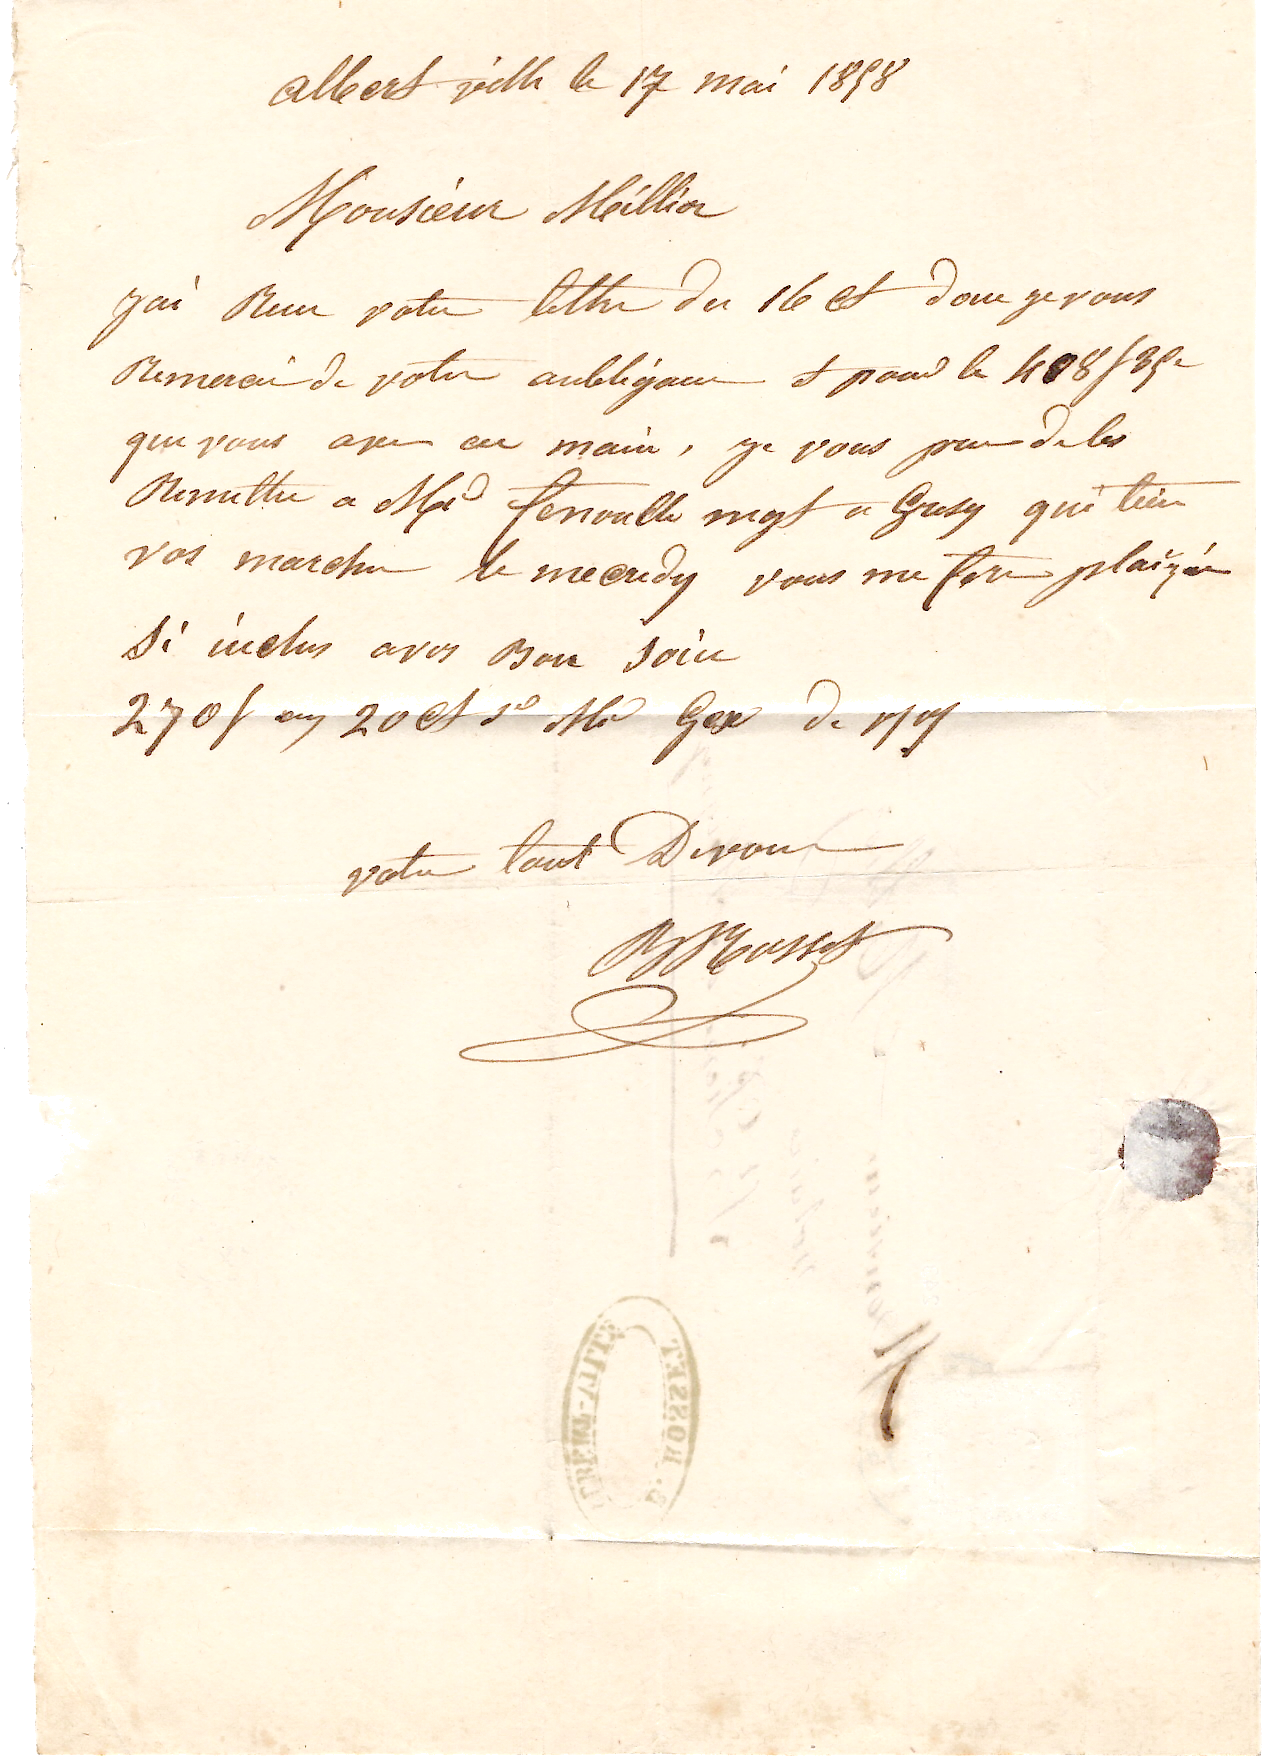 albert ville le 17 mai 1858
Monsieur Meillior
jai Recu votre lettre du 16 ct donc je vous
Remercai de votre aubligance et pour le 408f 35c
que vous ave en main, je vous prie de les
Remettre a Mrd fenoulle negt a Gresy qui tien
vos marche le mecredy vous me fere plaizir
Si inclus aves Bon Soin
270f au 20 ct Sr Md Gex de
votre tout Devoue
B Rosset
ALBERT-VILLE
B. ROSSET